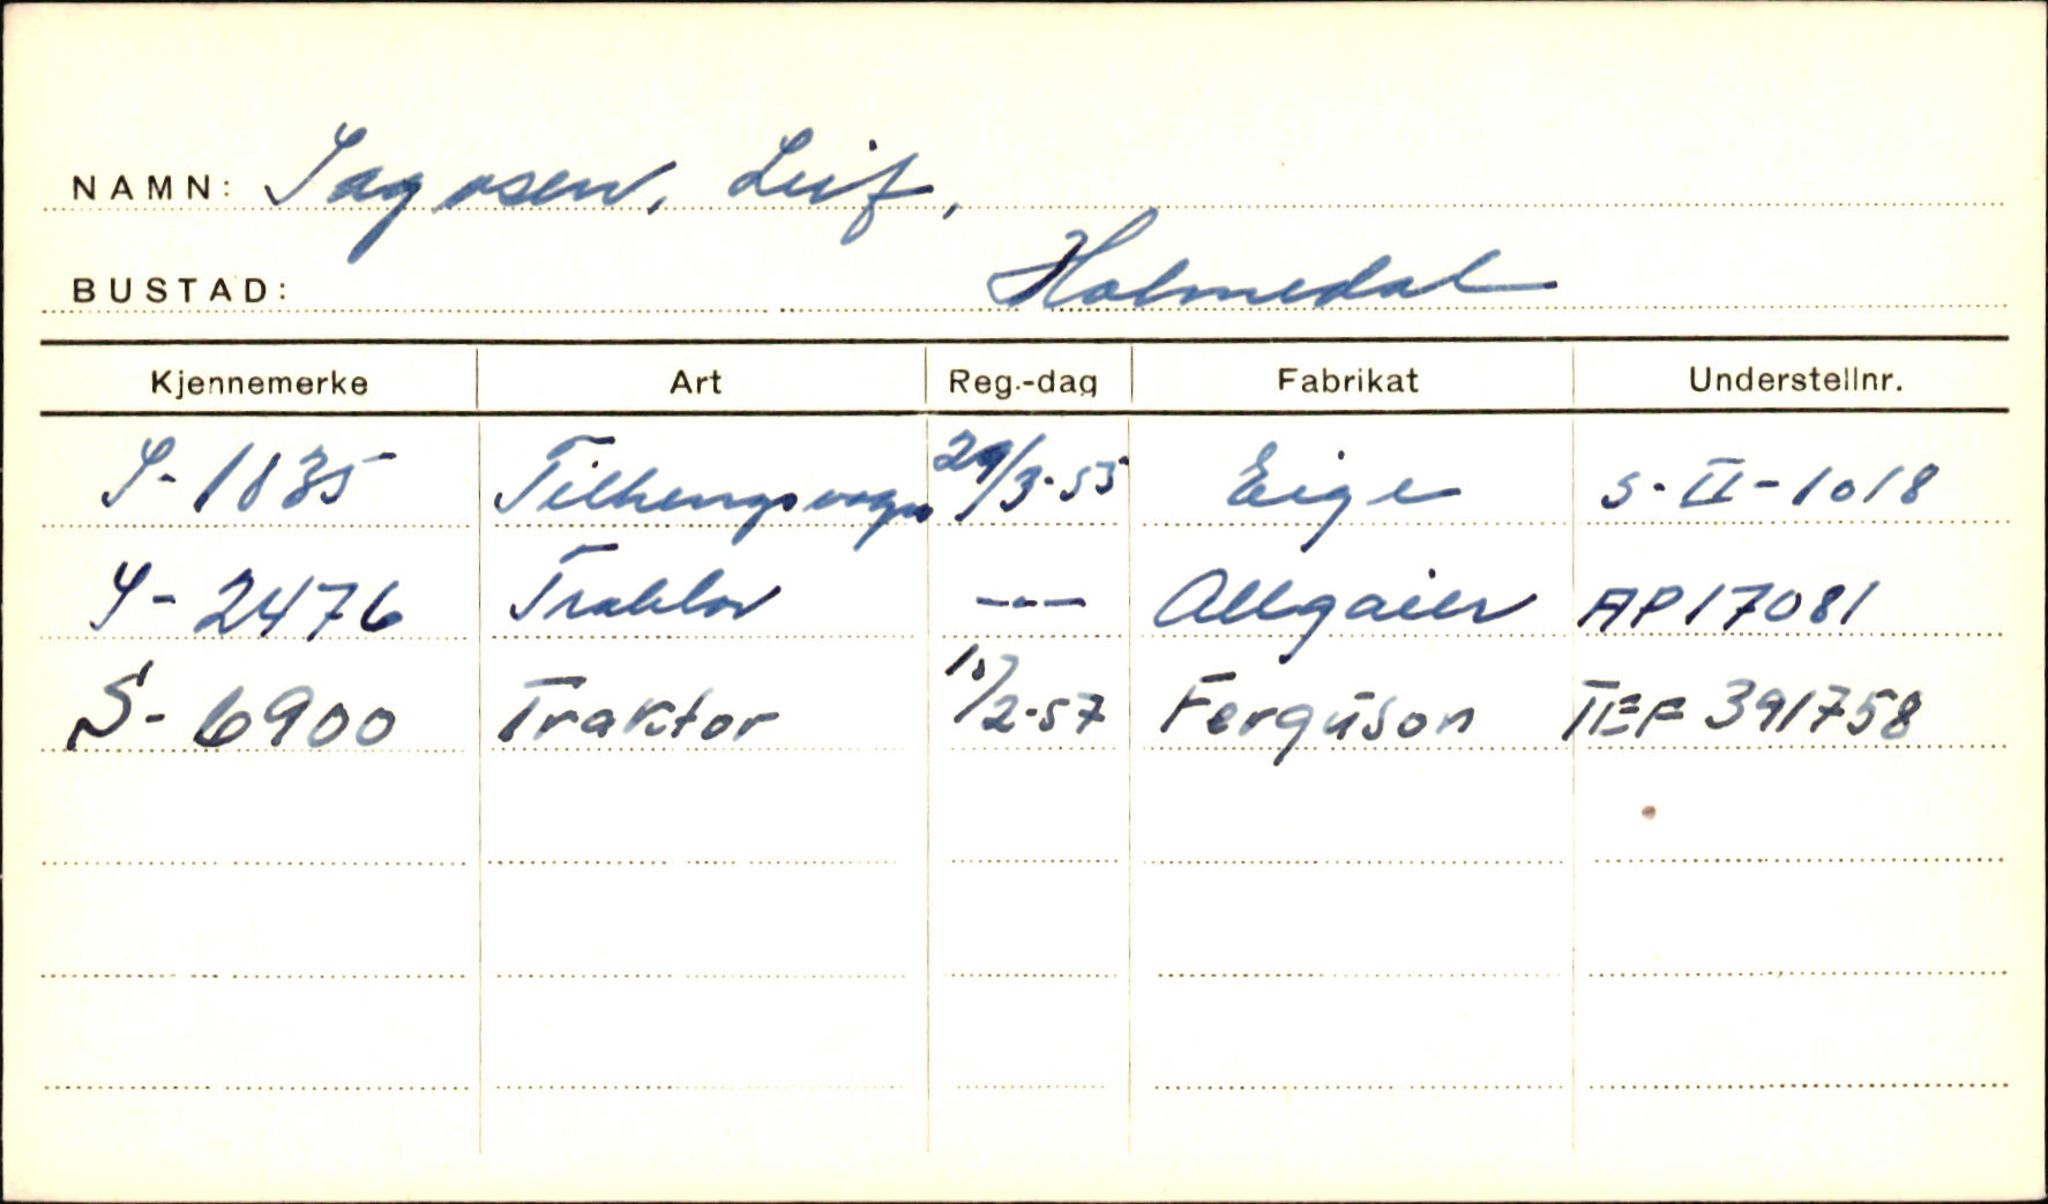 NAMN: Sagosen, Leif,
BUSTAD: Holmedal
Kjennemerke Art Reg.-dag Fabrikat Understellnr.
S-1835 Tilhengsvogn 29/3-55 Eige S-II-1018
S-2476 Traktor -"- Allgaier AP17081
S-6900 Traktor 15/2-57 Ferguson TEF 391758